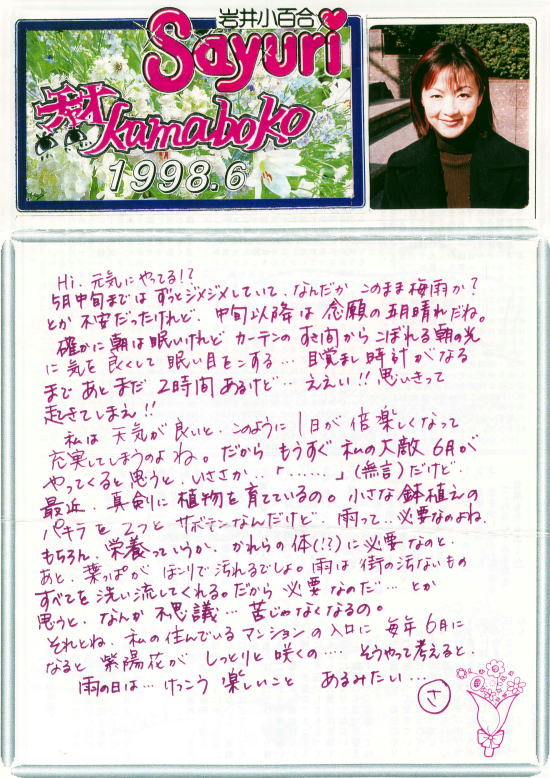 岩井小百合
Sayuri
kamaboko
1998.6
Hi. 元気にやってる!?
5月中旬まではずっとジメジメしていて、なんだか このまま梅雨か?
とか 不安だったけれど、中旬以降は 念願の五月晴れだね。
確かに朝は眠いけれど カーテンのすき間から こぼれる朝の光
に 気を良くして 眠い目をこする… 目覚まし時計がなる
まで あと まだ 2時間 あるけど… ええい!! 思いきって
起きてしまえ!!
私は 天気が良いと、このように 1日が 倍 楽しくなって
充実してしまうのよね。だから もうすぐ 私の大敵 6月が
やってくると思うと、いささか‥「……」(無言)だけど、
最近、真剣に 植物を育てているの。小さな鉢植えの
パキラを 2つと サボテンなんだけど、雨って‥必要なのよね。
もちろん、栄養っていうか、かれらの体(!?)に必要なのと、
あと、葉っぱが ほこりで汚れるでしょ。雨は 街の汚ないもの
すべてを 洗い流してくれる。だから 必要なのだ… とか
思うと、なんか 不思議… 苦じゃなくなるの。
それとね、私の住んでいる マンションの入口に 毎年 6月に
なると 紫陽花が しっとりと 咲くの…. そうやって考えると、
雨の日は… けっこう 楽しいこと あるみたい…
さ